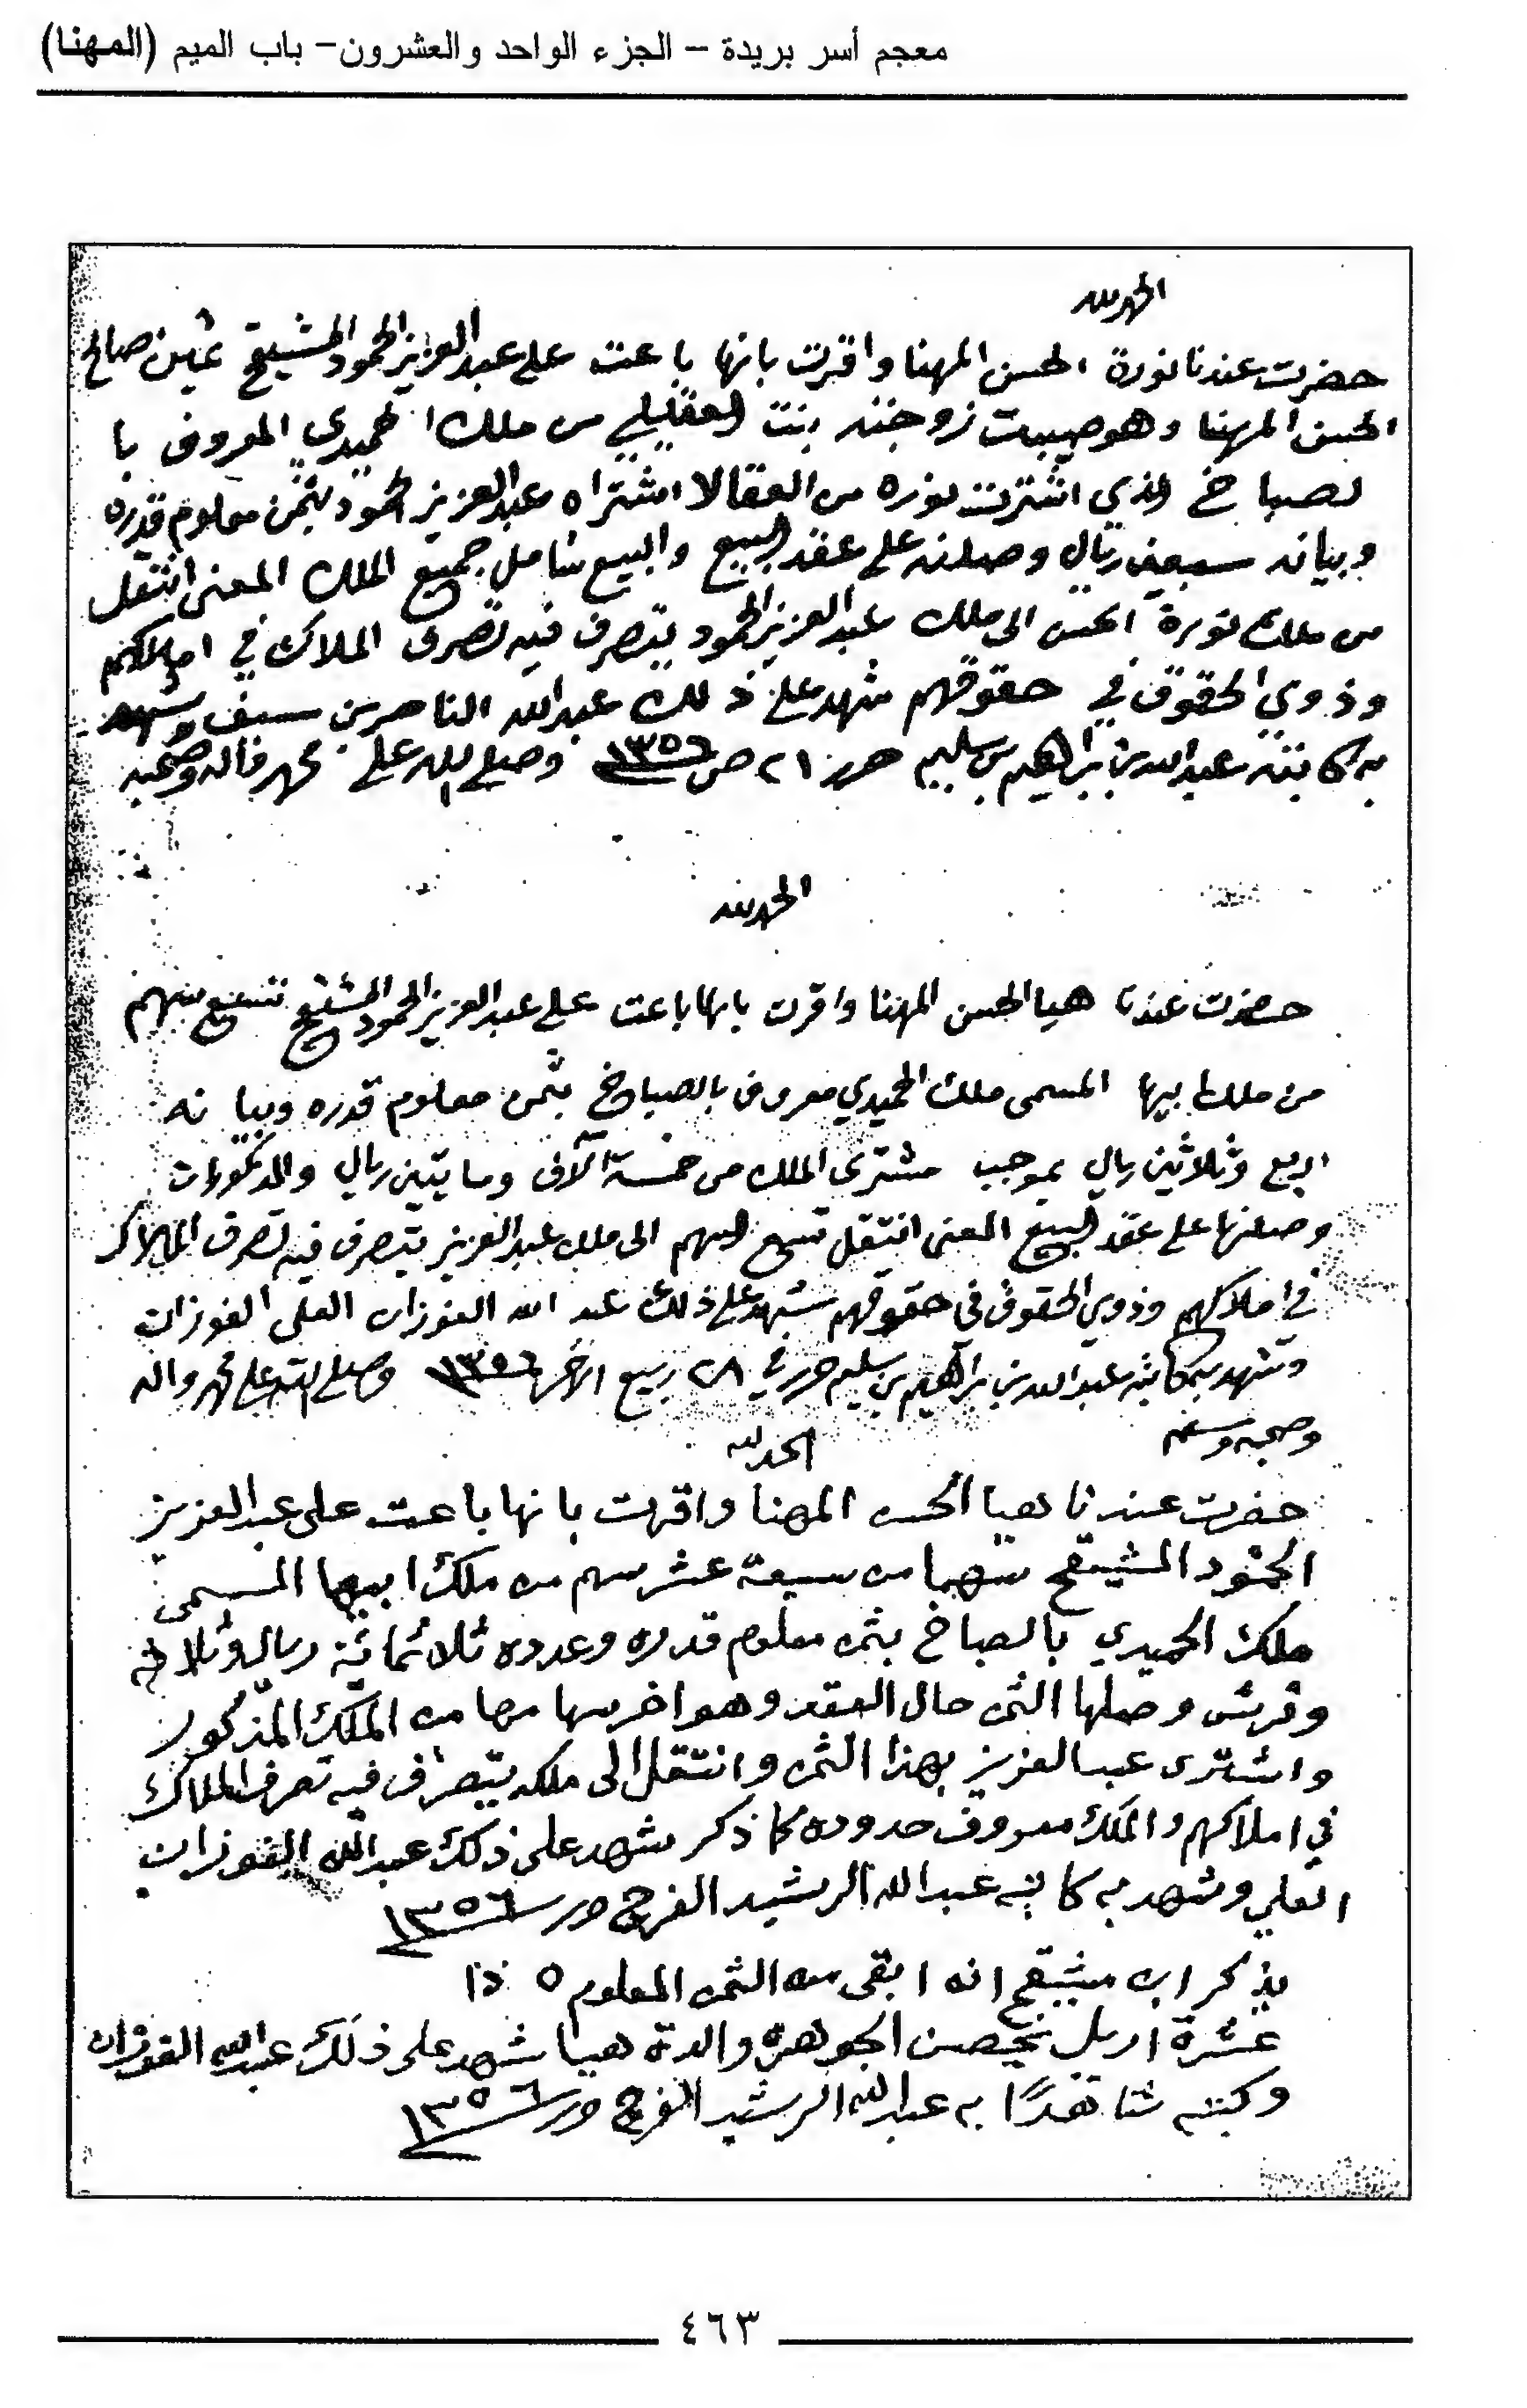 معجم أسر بريدة – الجزء الواحد والعشرون– باب الميم (المهنا)
الحمد لله
حضرت عندنا نورة الحسن المهنا واقرت بانها باعت على عبدالعزيز الحمود المشيقح ثمين صالح
الحسن المهنا وهو صيبت زوجته بنت العقيلي من ملك الحميدي المعروف با
لصباخ الذي اشترت نوره من العقالا اشتراه عبدالعزيز الحمود بثمن معلوم قدره
وبيانه سبعين ريال وصلنه على عقد البيع والبيع شامل جميع الملك المعنى انتقل
من ملك نورة الحسن الى ملك عبدالعزيز الحمود يتصرف فيه تصرف الملاك في املاكهم
وذوي الحقوق في حقوقهم شهد على ذلك عبدالله الناصر بن سيف وشهد
به كاتبه عبدالله بن ابراهيم بن سليم حرر ٢١ ص ١٣٥٦ وصلى الله على محمد واله وصحبه
الحمد لله
حضرت عندنا هيا الحسن المهنا واقرت بانها باعت على عبدالعزيز الحمود المشيقح تسع سهم
من ملك ابيها المسمى ملك الحميدي معروف بالصباخ بثمن معلوم قدره وبيانه
اربع وثلاثين ريال بموجب مشترى الملك من خمسة آلاف ومايتين ريال والمذكورات
وصلنها على عقد البيع المعنى انتقل تسع السهم الى ملك عبدالعزيز يتصرف فيه تصرف الملاك
في املاكهم وذوي الحقوق في حقوقهم شهد على ذلك عبد الله الفوزان العلي الفوزان
وشهد به كاتبه عبدالله بن ابراهيم بن سليم حرر في ٢٨ ربيع الآخر ١٣٥٦ وصلى الله على محمد واله
وصحبه وسلم
الحمد لله
حضرت عندنا هيا الحسن المهنا واقرت بانها باعت على عبدالعزيز
الحمود المشيقح سهما من سبعة عشر سهم من ملك ابيها المسمى
ملك الحميدي بالصباخ بثمن معلوم قدره وعدده ثلاثمائة ريال وثلاثة
وقرش وصلها الثمن حال العقد وهو اخر سهامها من الملك المذكور
واشترى عبدالعزيز بهذا الثمن وانتقل الى ملكه يتصرف فيه تصرف الملاك
في املاكهم والملك معروف حدوده كما ذكر شهد على ذلك عبدالله الفوزان
العلي وشهد به كاتبه عبدالله الرشيد الفرج حرر ١٣٥٦
يذكر ابن مشيقح انه ابقى من الثمن المعلوم
عشرة اريل تخص الجوهرة والدة هيا شهد على ذلك عبدالله الفوزان
وكتبه شاهدًا به عبدالله الرشيد الفرج حرر ١٣٥٦
٤٦٣